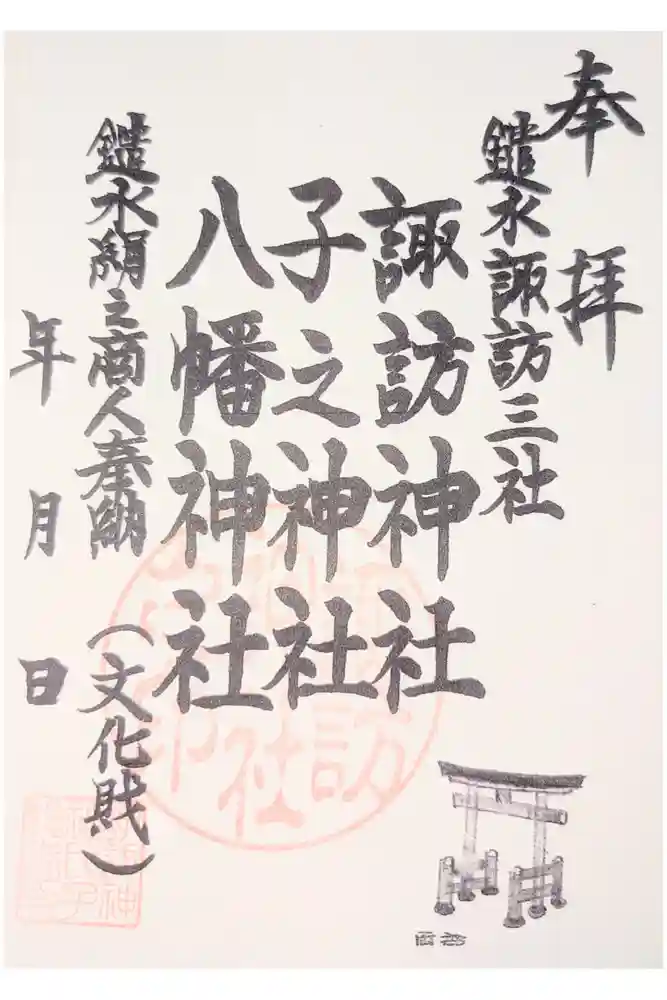 奉拝
鑓水諏訪三社
諏訪神社
子之神神社
八幡神社
鑓水絹之商人奉納(文化財)
年月日